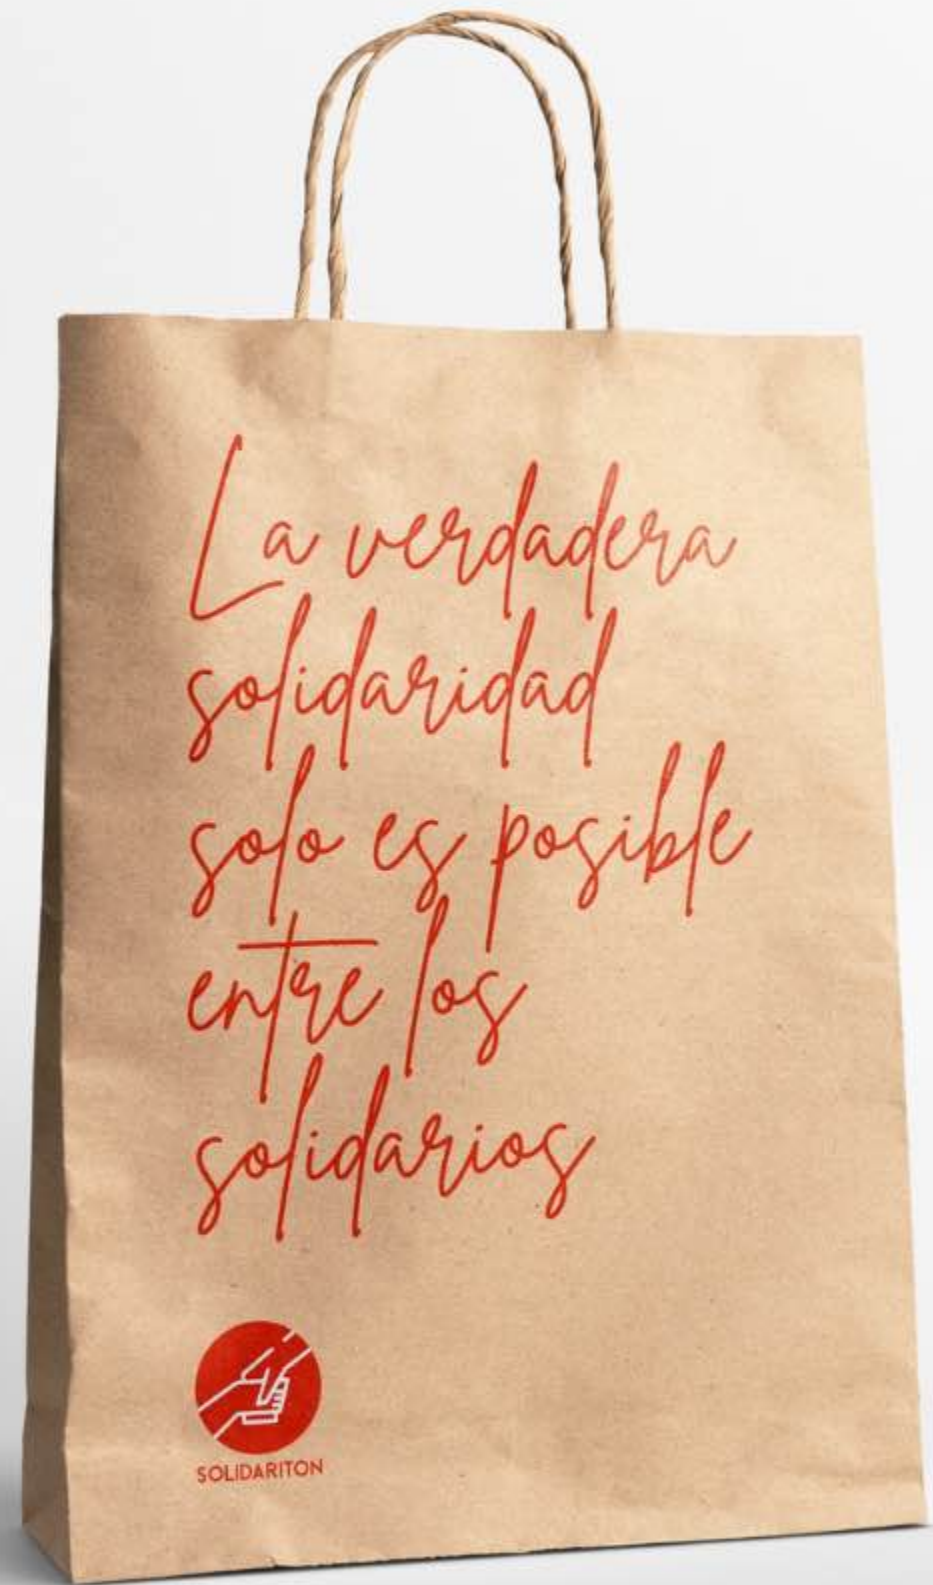 La verdadera
solidaridad
solo es posible
entre los
solidarios
SOLIDARITON